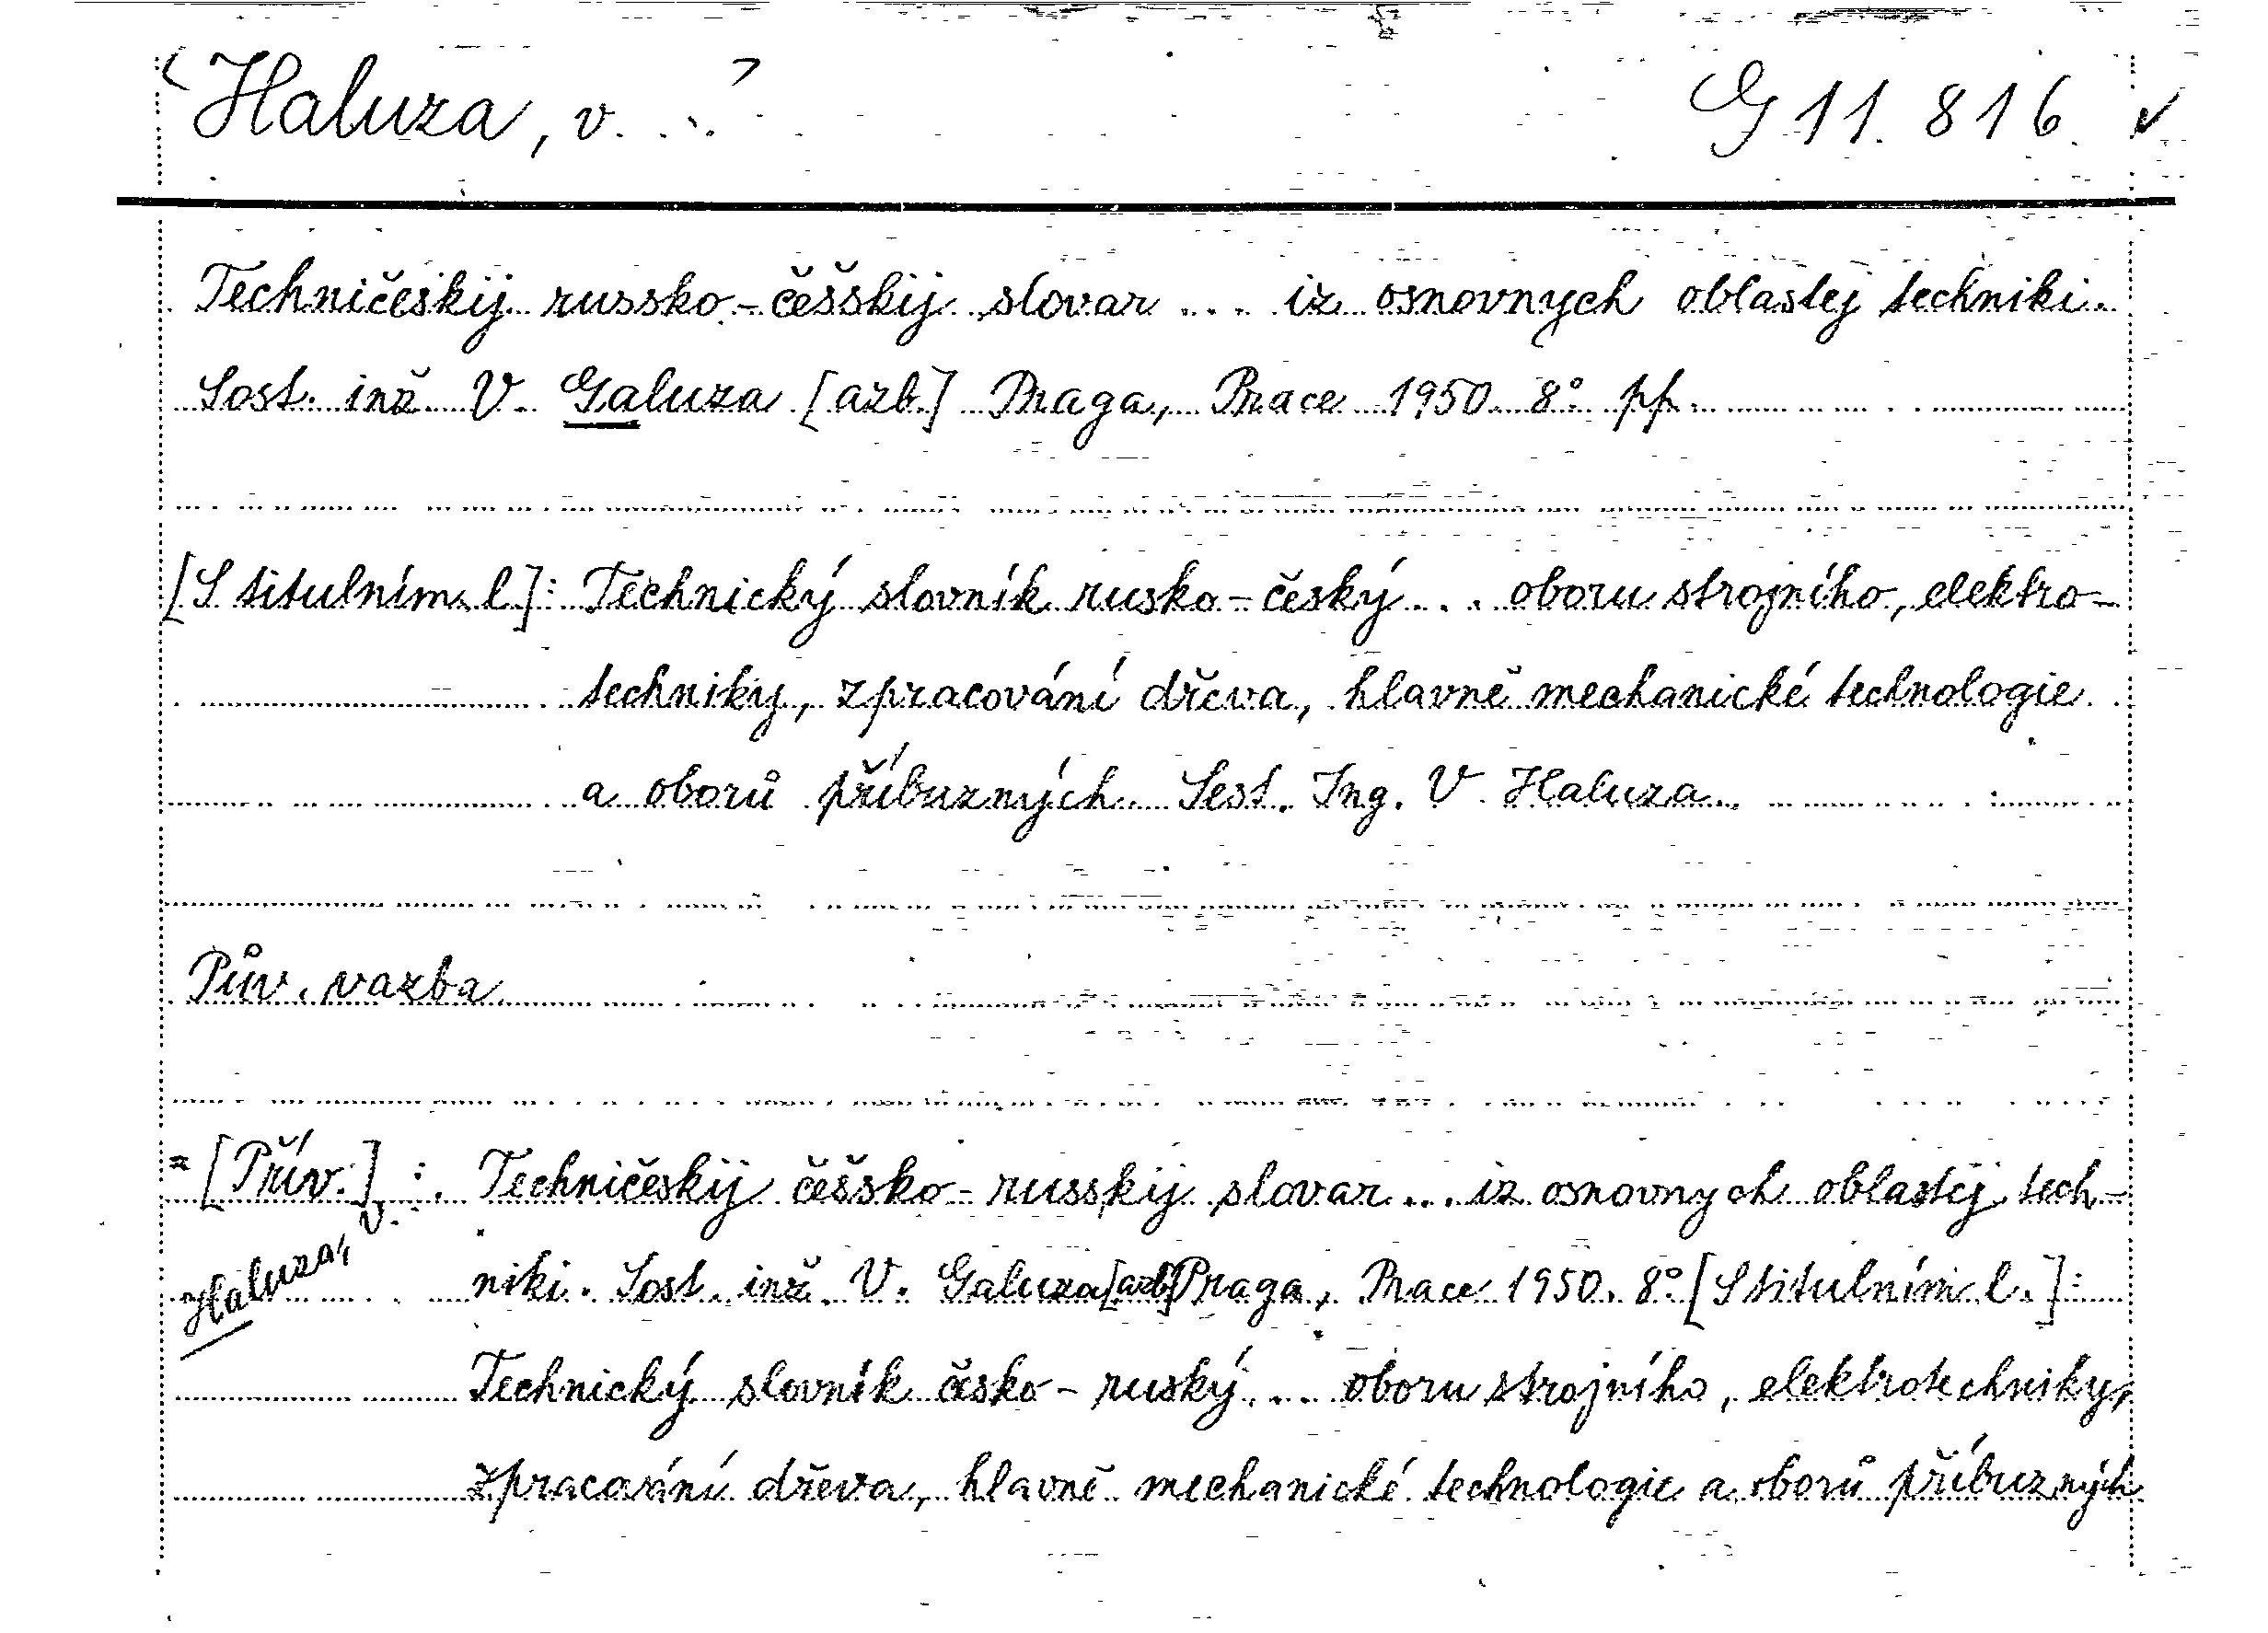 ⟨Haluza, V. ..⟩ G 11.816 ✓
Techničeskij russko-češskij slovar ... iz osnovnych oblastej techniki.
Sost. inž V. Galuza [azb.] Praga, Prace 1950. 8° pp.
[S titulním l]: Technický slovník rusko-český ... oboru strojního, elektro-
techniky, zpracování dřeva, hlavně mechanické technologie
a oborů příbuzných Sest. Ing. V. Haluza.
Pův. vazba
= [Přív.]: Techničeskij češsko-russkij slovar ... iz osnovnych oblastej tech-
Haluza, V.
niki. Sost. inž. V. Galuza [azb] Praga, Prace 1950. 8° [S titulním l.]:
Technický slovník česko-ruský ... oboru strojního, elektrotechniky,
zpracování dřeva, hlavně mechanické technologie a oborů příbuzných